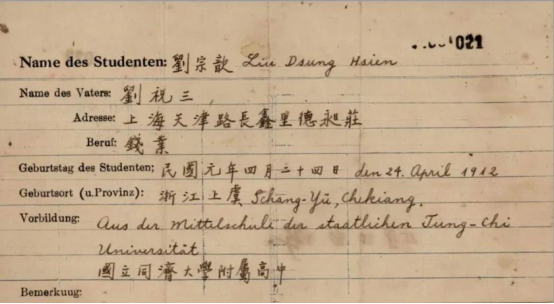 021
Name des Studenten: 劉宗歆 Liu Dsung Hsien
Name des Vaters: 劉祝三
Adresse: 上海天津路長鑫里德昶莊
Beruf: 錢業
Geburtstag des Studenten: 民國元年四月二十四日 den 24. April 1912
Geburtsort (u.Provinz): 浙江上虞 Schang-Yü, Chekiang.
Vorbildung: Aus der Mittelschule der staatlichen Tung-Chi
Universität
國立同濟大學附屬高中
Bemerkung: